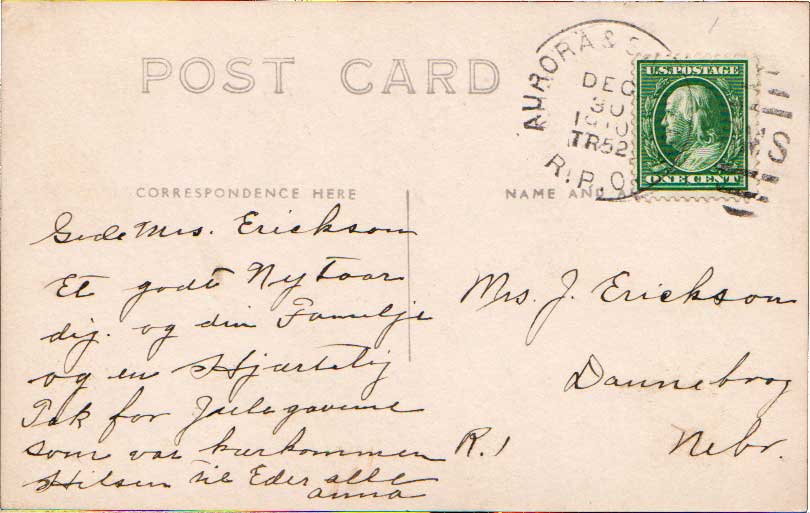 POST CARD
AURORA & S
DEC
30
1910
TR52
R.P.O.
U.S. POSTAGE
ONE CENT
CORRESPONDENCE HERE
NAME AND A
Gode Mrs. Erickson
Et godt Nyt aar
dig. og din Familje
og en Hjærtelig
Tak for Julegaverne
som var kærkommen
Hilsen til Eder alle
anna
Mrs. J. Erickson
Dannebrog
R. 1 Nebr.